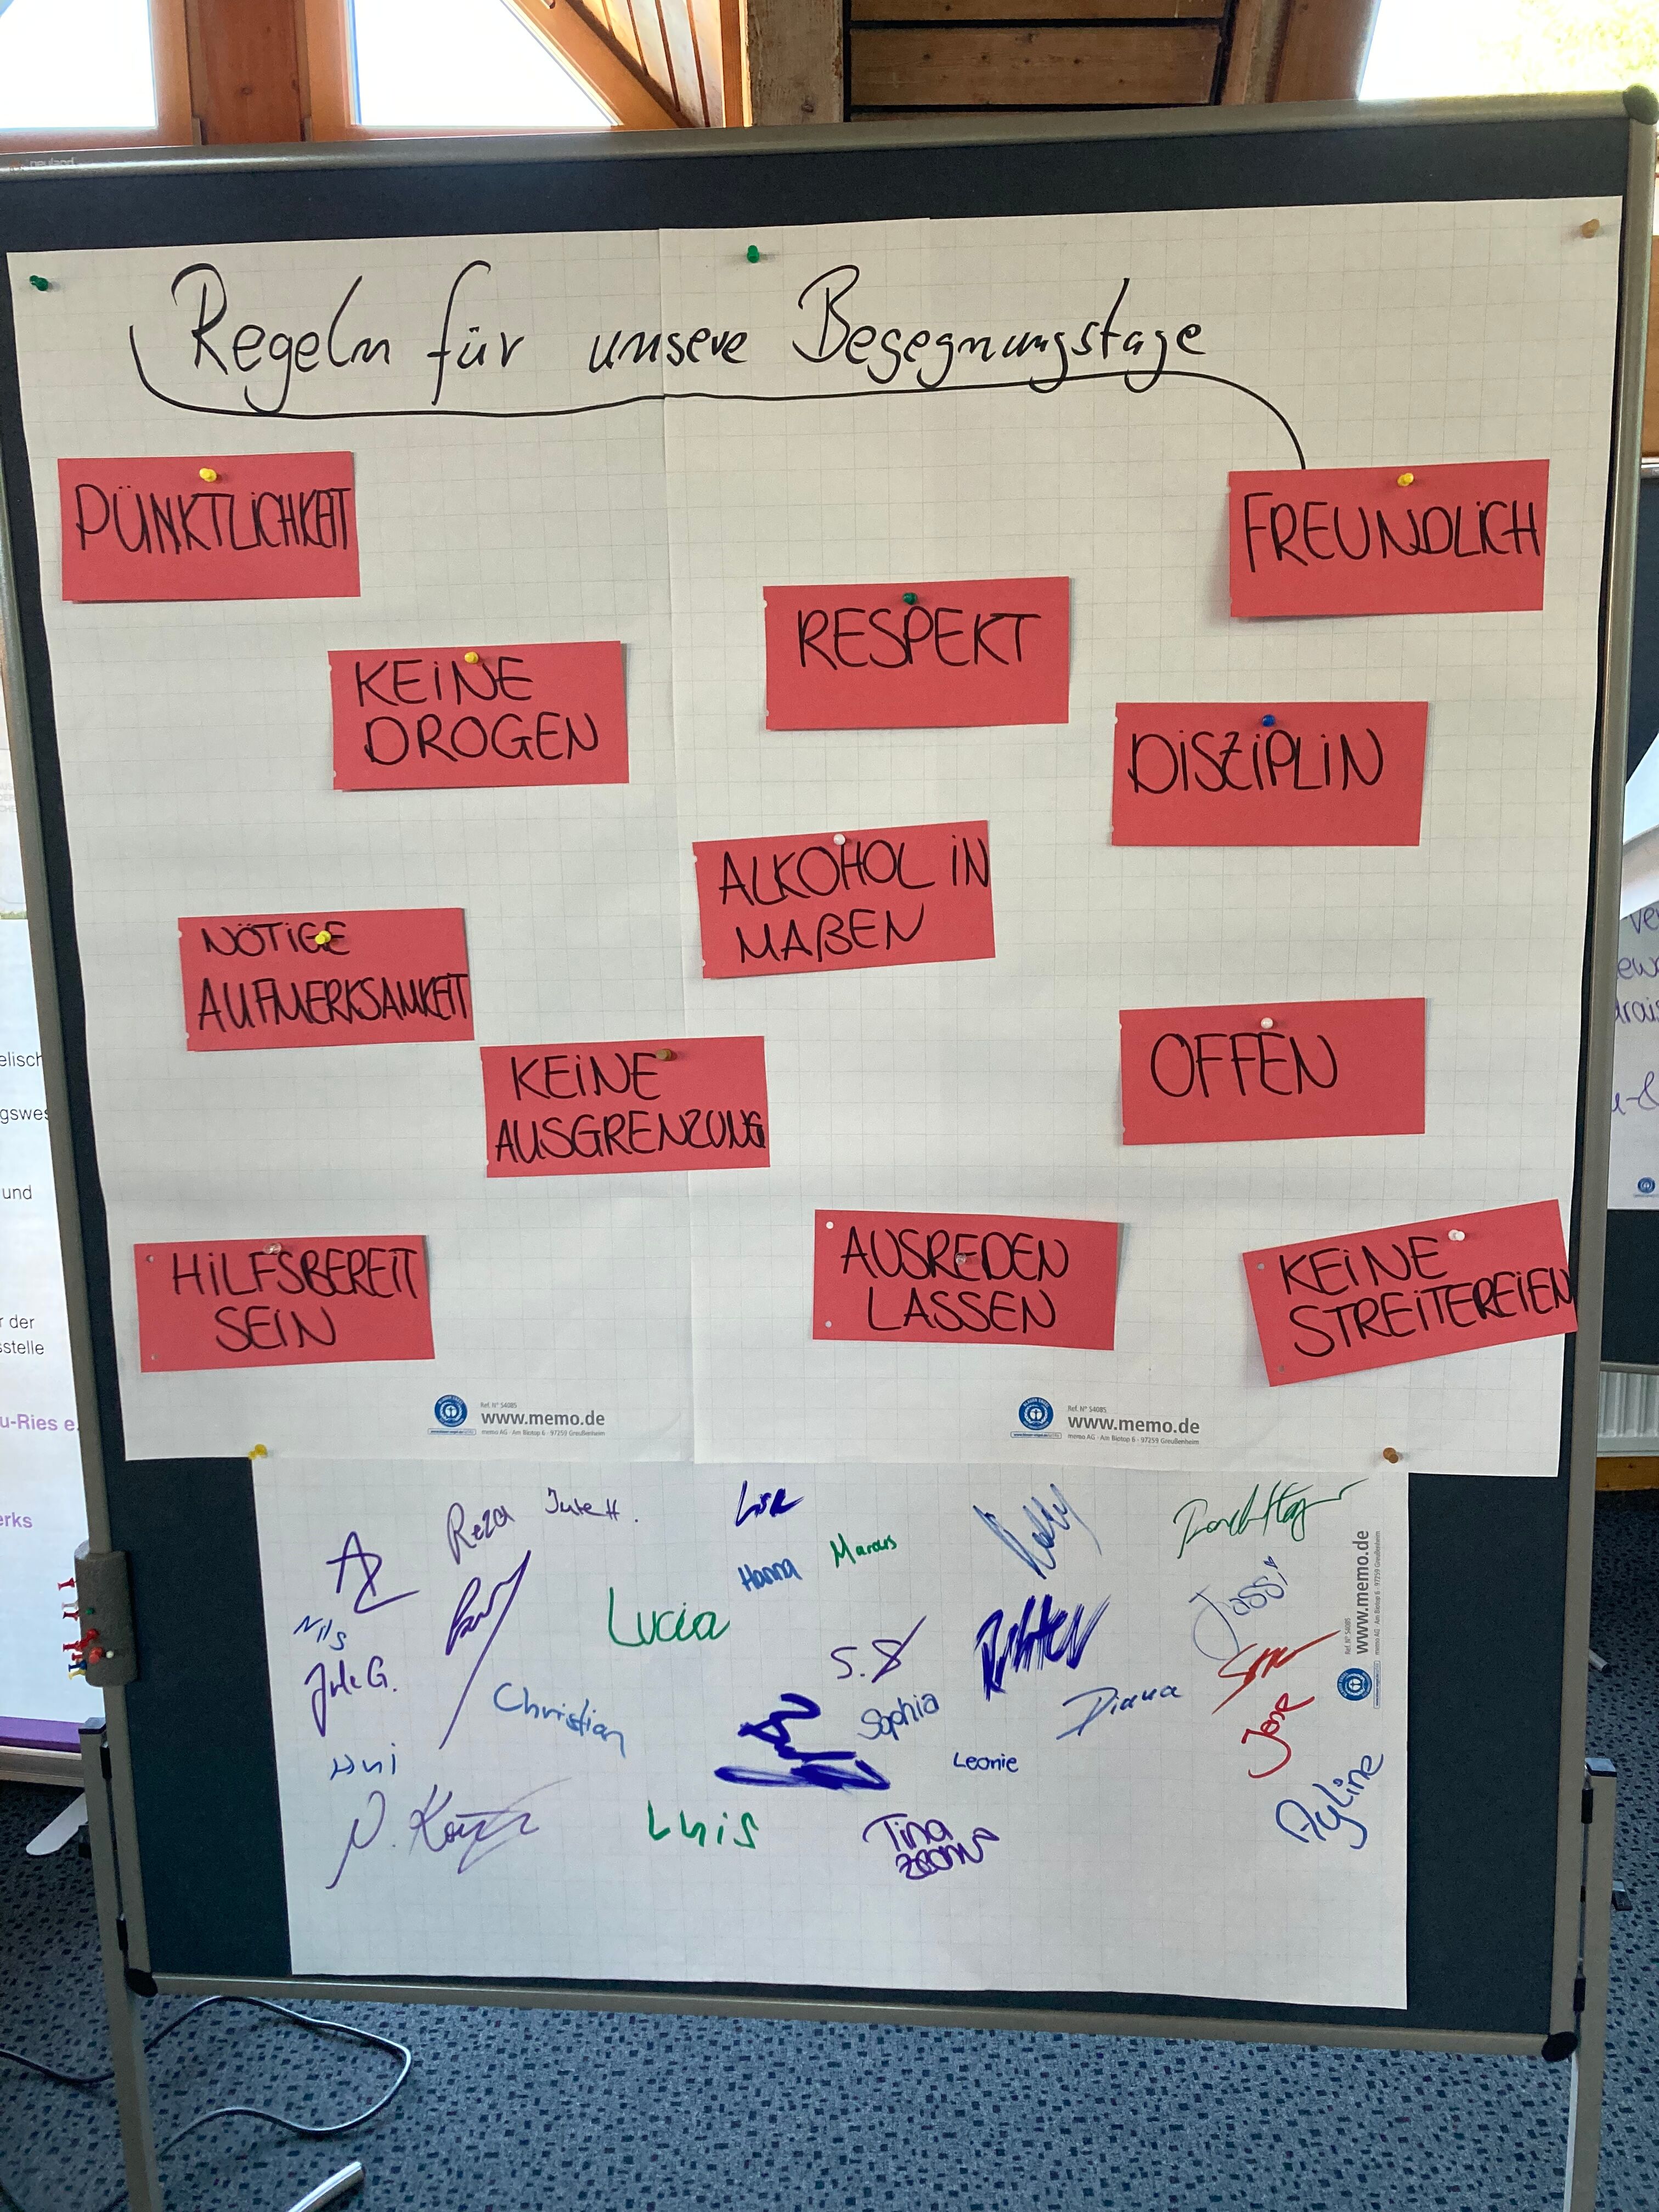 neuland
Regeln für unsere Begegnungstage
PÜNKTLICHKEIT
FREUNDLICH
RESPEKT
KEINE
DROGEN
DISZIPLIN
ALKOHOL IN
MAßEN
NÖTIGE
AUFMERKSAMKEIT
OFFEN
KEINE
AUSGRENZUNG
HILFSBEREIT
SEIN
AUSREDEN
LASSEN
KEINE
STREITEREIEN
Ref. N° 54085
www.memo.de
memo AG · Am Biotop 6 · 97259 Greußenheim
Ref. N° 54085
www.memo.de
memo AG · Am Biotop 6 · 97259 Greußenheim
Reza
Jule H.
Hanna
Marcus
Lucia
Jassi
Nils
Jule G.
S.S
Christian
Sophia
Diana
Jose
Leonie
N.
Luis
Tina
Ayline
Ref. N° 54085
www.memo.de
memo AG · Am Biotop 6 · 97259 Greußenheim
elisch
gswes
und
r der
sstelle
u-Ries e.
erks